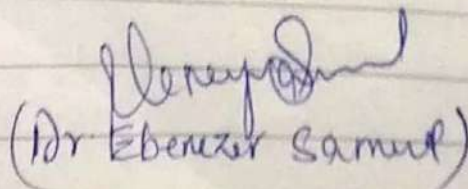 (Dr Ebenezer Samuel)